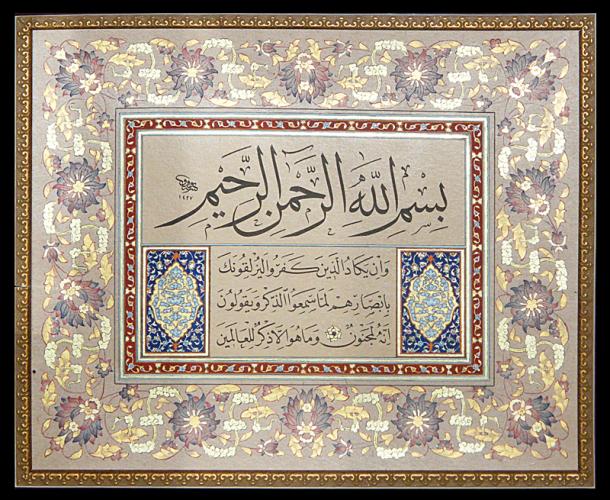 بِسْمِ اللَّهِ الرَّحْمَنِ الرَّحِيمِ
١٤٢٧
وَانْ يَكَادُ الَّذِينَ كَفَرُوا لَيُزْلِقُونَكَ
بِاَبْصَارِهِمْ لَمَّا سَمِعُوا الذِّكْرَ وَيَقُولُونَ
اِنَّهُ لَمَجْنُونٌ وَمَا هُوَ اِلَّا ذِكْرٌ لِلْعَالَمِينَ